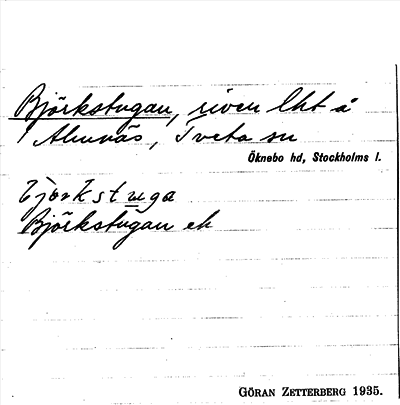 Björkstugan, riven lht å
Almnäs, Tveta sn
Öknebo hd, Stockholms l.
Björkstugan ek
GÖRAN ZETTERBERG 1935.